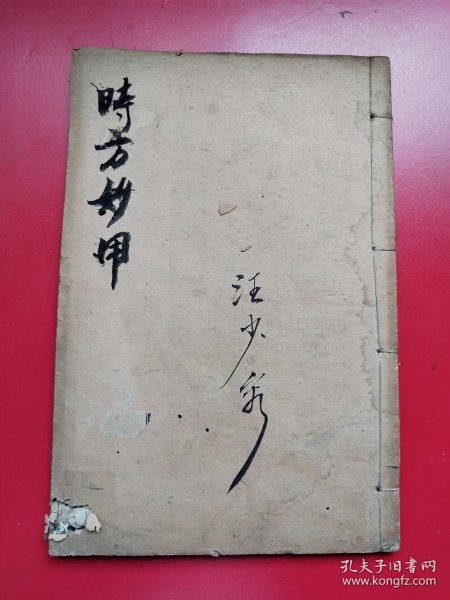 時方妙用
汪少
孔夫子旧书网
www.kongfz.com